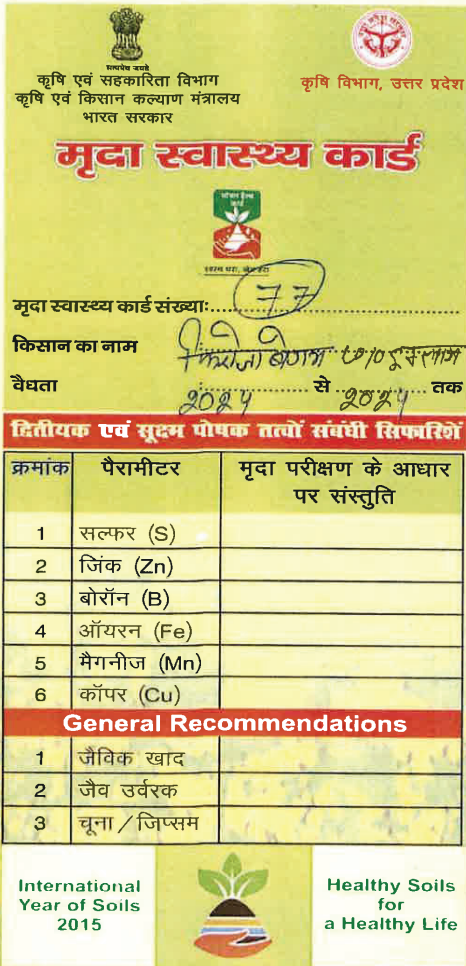 सत्यमेव जयते
कृषि एवं सहकारिता विभाग
कृषि एवं किसान कल्याण मंत्रालय
भारत सरकार
कृषि विभाग, उत्तर प्रदेश
मृदा स्वास्थ्य कार्ड
स्वस्थ धरा, खेत हरा
मृदा स्वास्थ्य कार्ड संख्याः 77
किसान का नाम फिरोजा बेगम
वैधता 2024 से 2024 तक
द्वितीयक एवं सूक्ष्म पोषक तत्वों संबंधी सिफारिशें
क्रमांक पैरामीटर मृदा परीक्षण के आधार
पर संस्तुति
1 सल्फर (S)
2 जिंक (Zn)
3 बोरॉन (B)
4 ऑयरन (Fe)
5 मैगनीज (Mn)
6 कॉपर (Cu)
General Recommendations
1 जैविक खाद
2 जैव उर्वरक
3 चूना / जिप्सम
International
Year of Soils
2015
Healthy Soils
for
a Healthy Life